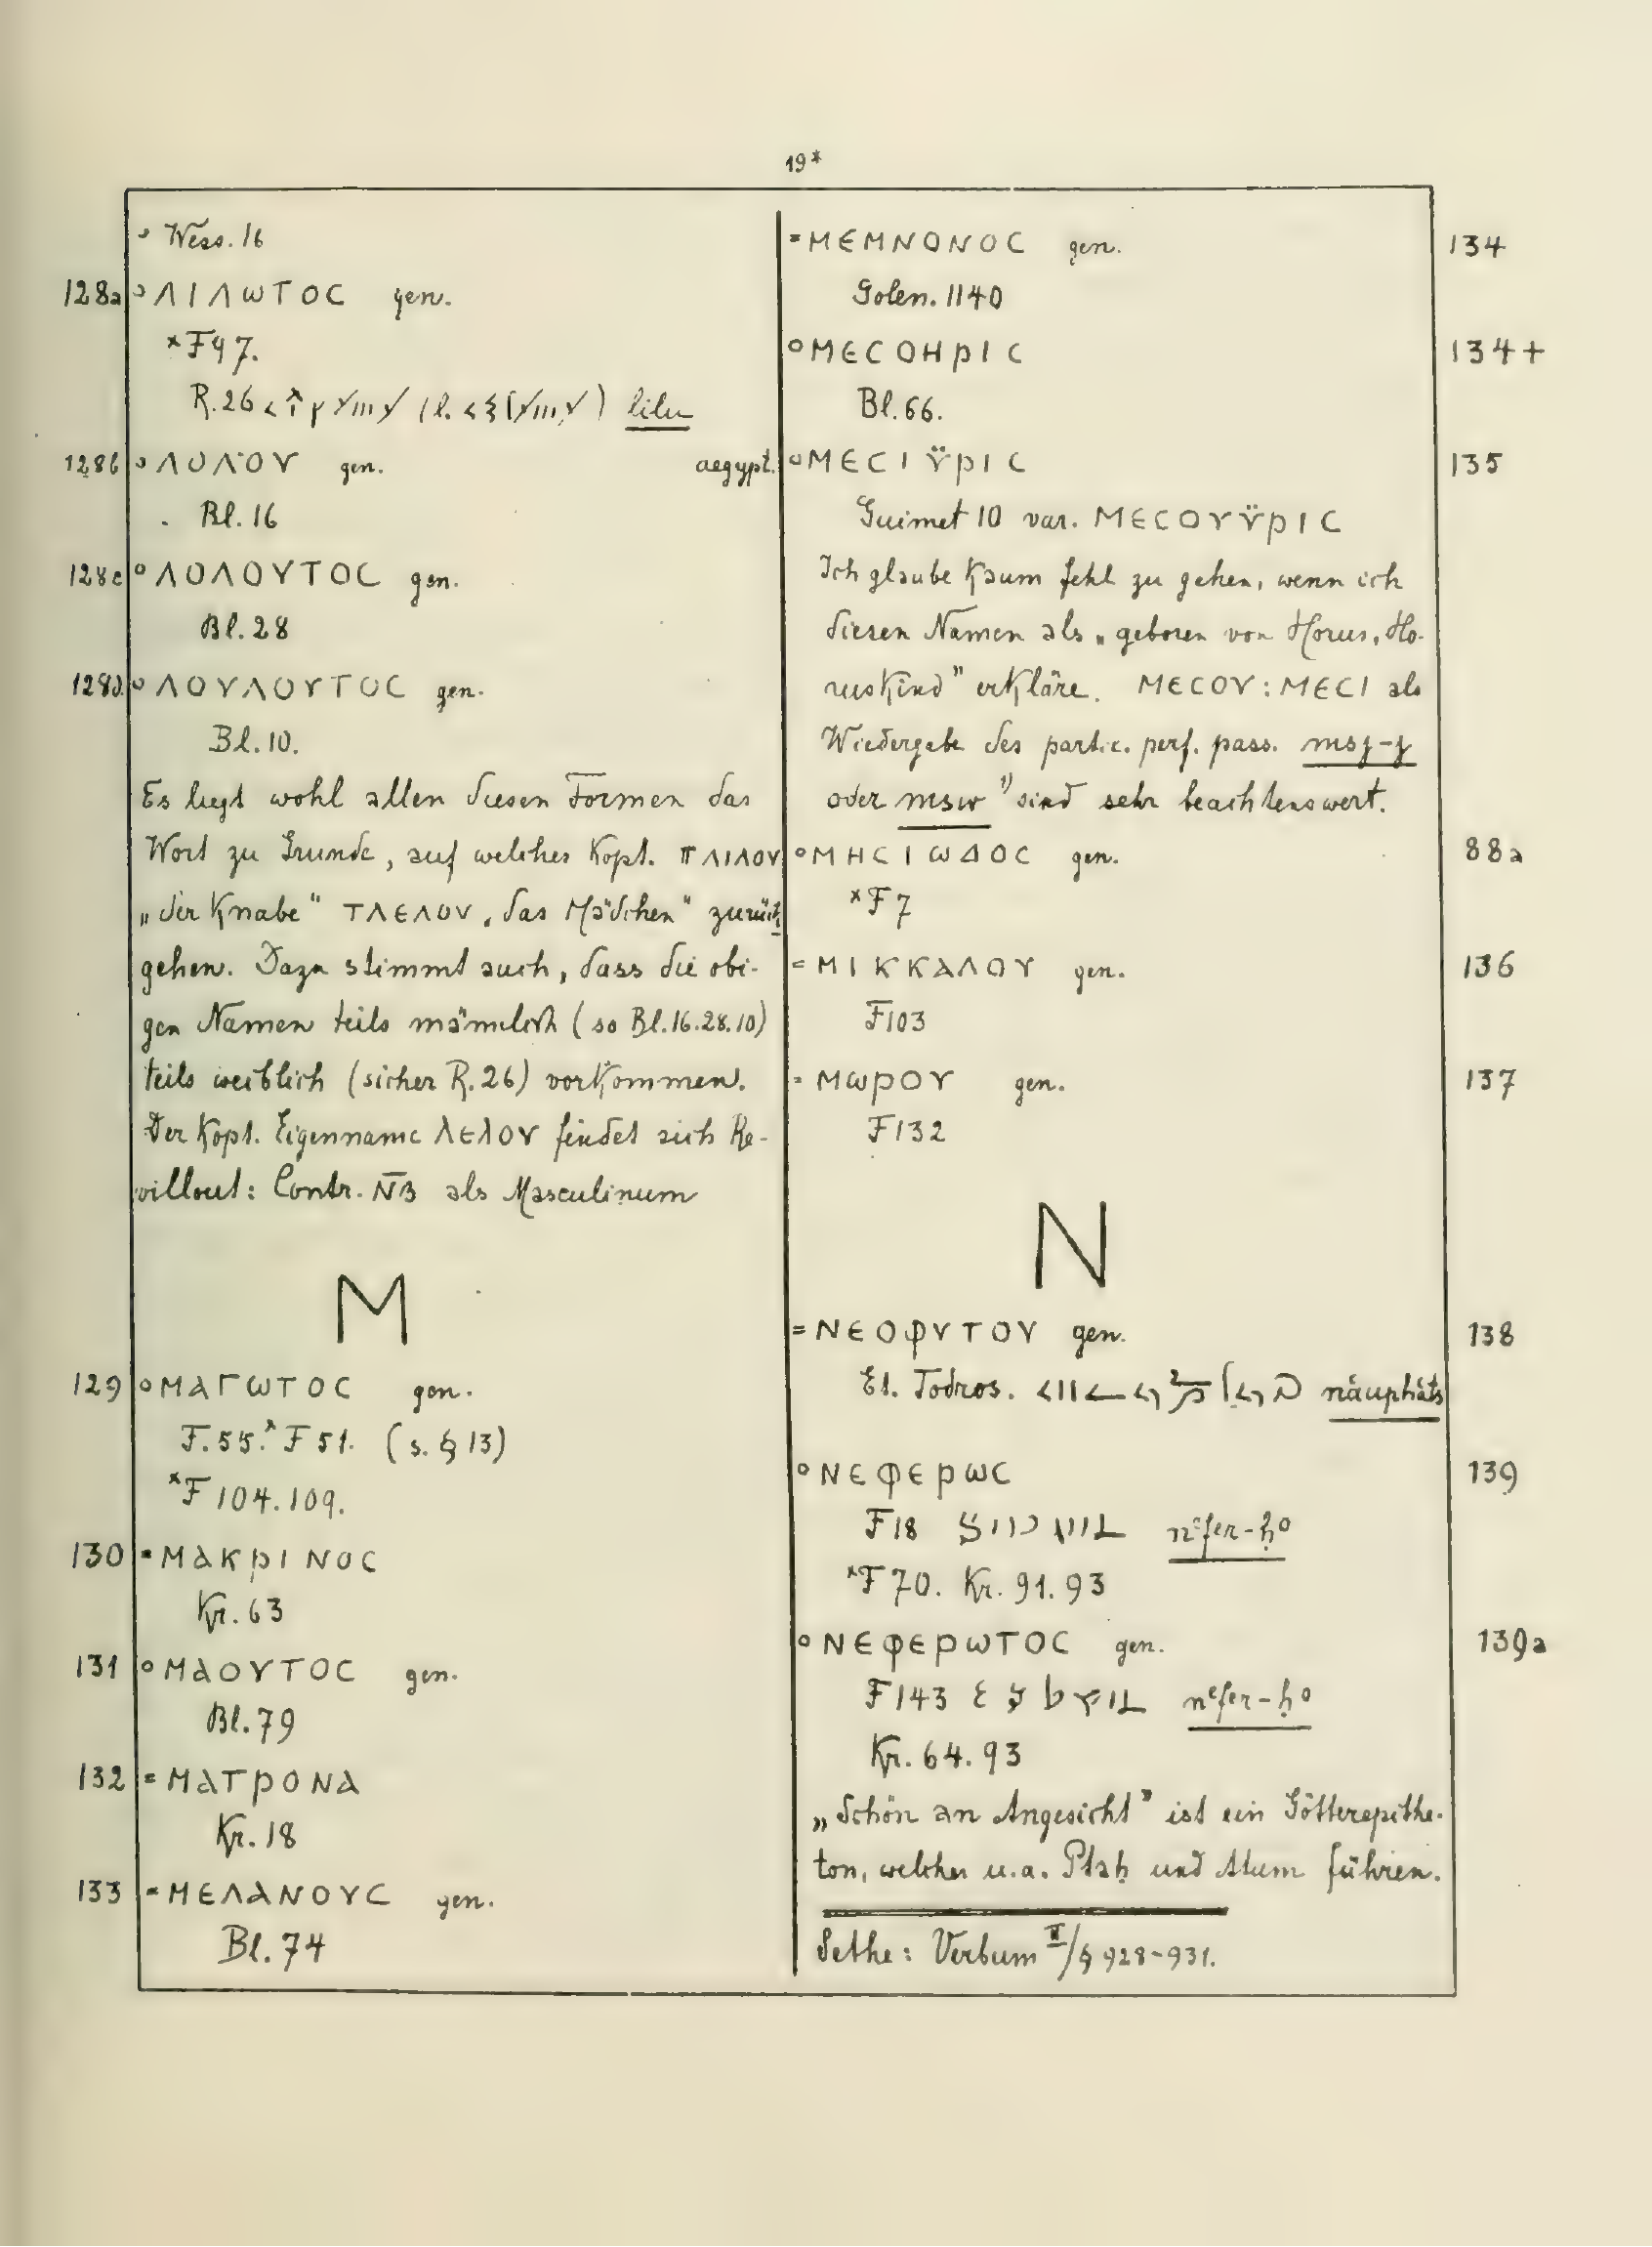 19*
° Wess. 16
128a ° ΛΙΛωΤΟC gen.
*F97.
R. 26 lilu
128b ° ΛΟΛΟΥ gen. aegypt.
Bl. 16
128c ° ΛΟΛΟΥΤΟC gen.
Bl. 28
128d. ° ΛΟΥΛΟΥΤΟC gen.
Bl. 10.
Es liegt wohl allen diesen Formen das
Wort zu Grunde, auf welches Kopt. ΠΛΙΛΟΥ
„der Knabe" ΤΛΕΛΟΥ „das Mädchen" zurück
gehen. Dazu stimmt auch, dass die obi-
gen Namen teils männlich (so Bl. 16.28.10)
teils weiblich (sicher R. 26) vorkommen.
Der Kopt. Eigenname ΛΕΛΟΥ findet sich Re-
villout: Contr. als Masculinum
M
129 ° ΜΑΓωΤΟC gen.
F. 55. *F 51. (s. § 13)
*F 104. 109.
130 = ΜΑΚΡΙΝΟC
Kr. 63
131 ° ΜΑΟΥΤΟC gen.
Bl. 79
132 = ΜΑΤΡΟΝΑ
Kr. 18
133 = ΜΕΛΑΝΟΥC gen.
Bl. 74
= ΜΕΜΝΟΝΟC gen. 134
Golen. 1140
° ΜΕCΟΗΡΙC 134+
Bl. 66.
° ΜΕCΙΫΡΙC 135
Guimet 10 var. ΜΕCΟΥΫΡΙC
Ich glaube kaum fehl zu gehen, wenn ich
diesen Namen als „geboren von Horus, Ho-
ruskind" erkläre. ΜΕCΟΥ : ΜΕCΙ als
Wiedergabe des partic. perf. pass. msj-j
oder msw ¹⁾ sind sehr beachtenswert.
° ΜΗCΙωΔΟC gen. 88a
*F 7
= ΜΙΚΚΑΛΟΥ gen. 136
F103
= ΜωΡΟΥ gen. 137
F132
N
= ΝΕΟΦΥΤΟΥ gen. 138
Et. Todros. nâuphâts
° ΝΕΦΕΡωC 139
F18 nᵉfer-ḥo
*F 70. Kr. 91. 93
° ΝΕΦΕΡωΤΟC gen. 139a
F143 nᵉfer-ḥo
Kr. 64. 93
„Schön an Angesicht" ist ein Götterepithe-
ton, welches u. a. Ptaḥ und Atum führen.
Sethe: Verbum II/§ 928-931.